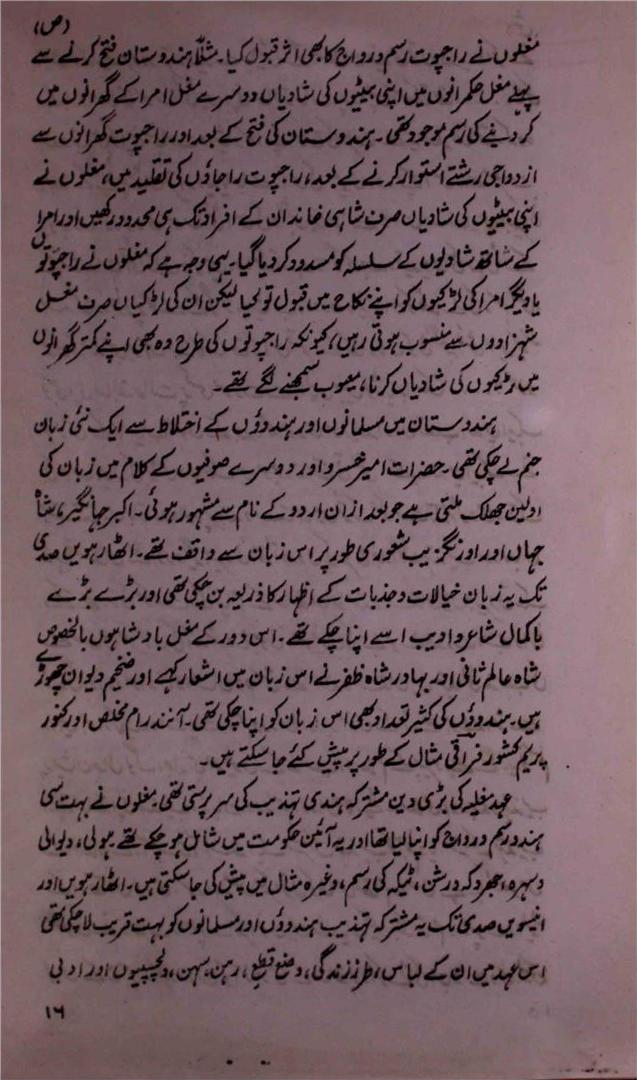 (ص)
مغلوں نے راجپوت رسم و رواج کا بھی اثر قبول کیا۔ مثلاً ہندوستان فتح کرنے سے
پہلے مغل حکمرانوں میں اپنی بیٹیوں کی شادیاں دوسرے مغل امرا کے گھرانوں میں
کر دینے کی رسم موجود تھی۔ ہندوستان کی فتح کے بعد اور راجپوت گھرانوں سے
ازدواجی رشتے استوار کرنے کے بعد، راجپوت راجاؤں کی تقلید میں، مغلوں نے
اپنی بیٹیوں کی شادیاں صرف شاہی خاندان کے افراد تک ہی محدود رکھیں اور امرا
کے ساتھ شادیوں کے سلسلہ کو مسدود کر دیا گیا۔ یہی وجہ ہے کہ مغلوں نے راجپوتوں
یا دیگر امرا کی لڑکیوں کو اپنے نکاح میں قبول تو کیا لیکن ان کی لڑکیاں صرف مغل
شہزادوں سے منسوب ہوتی رہیں، کیونکہ راجپوتوں کی طرح وہ بھی اپنے کمتر گھرانوں
میں لڑکیوں کی شادیاں کرنا، معیوب سمجھنے لگے تھے۔
ہندوستان میں مسلمانوں اور ہندوؤں کے اختلاط سے ایک نئی زبان
جنم لے چکی تھی۔ حضرات امیر خسرو اور دوسرے صوفیوں کے کلام میں زبان کی
اولین جھلک ملتی ہے جو بعد ازاں اردو کے نام سے مشہور ہوئی۔ اکبر جہانگیر، شاہ
جہاں اور اورنگزیب شعوری طور پر اس زبان سے واقف تھے۔ اٹھارہویں صدی
تک یہ زبان خیالات و جذبات کے اظہار کا ذریعہ بن چکی تھی اور بڑے بڑے
باکمال شاعر و ادیب اسے اپنا چکے تھے۔ اس دور کے مغل بادشاہوں بالخصوص
شاہ عالم ثانی اور بہادر شاہ ظفر نے اس زبان میں اشعار کہے اور ضخیم دیوان چھوڑے
ہیں۔ ہندوؤں کی کثیر تعداد بھی اس زبان کو اپنا چکی تھی۔ آنند رام مخلص اور کنور
پریم کشور فراقی مثال کے طور پر پیش کئے جا سکتے ہیں۔
عہد مغلیہ کی بڑی دین مشترکہ ہندی تہذیب کی سرپرستی تھی۔ مغلوں نے بہت سی
ہندو رسم و رواج کو اپنا لیا تھا اور یہ آئین حکومت میں شامل ہو چکے تھے۔ ہولی، دیوالی
دسہرہ، جھروکہ درشن، ٹیکہ کی رسم، وغیرہ مثال میں پیش کی جا سکتی ہیں۔ اٹھارہویں اور
انیسویں صدی تک یہ مشترکہ تہذیب ہندوؤں اور مسلمانوں کو بہت قریب لا چکی تھی
اس عہد میں ان کے لباس، طرز زندگی، وضع قطع، رہن سہن، دلچسپیوں اور ادبی
۱۶